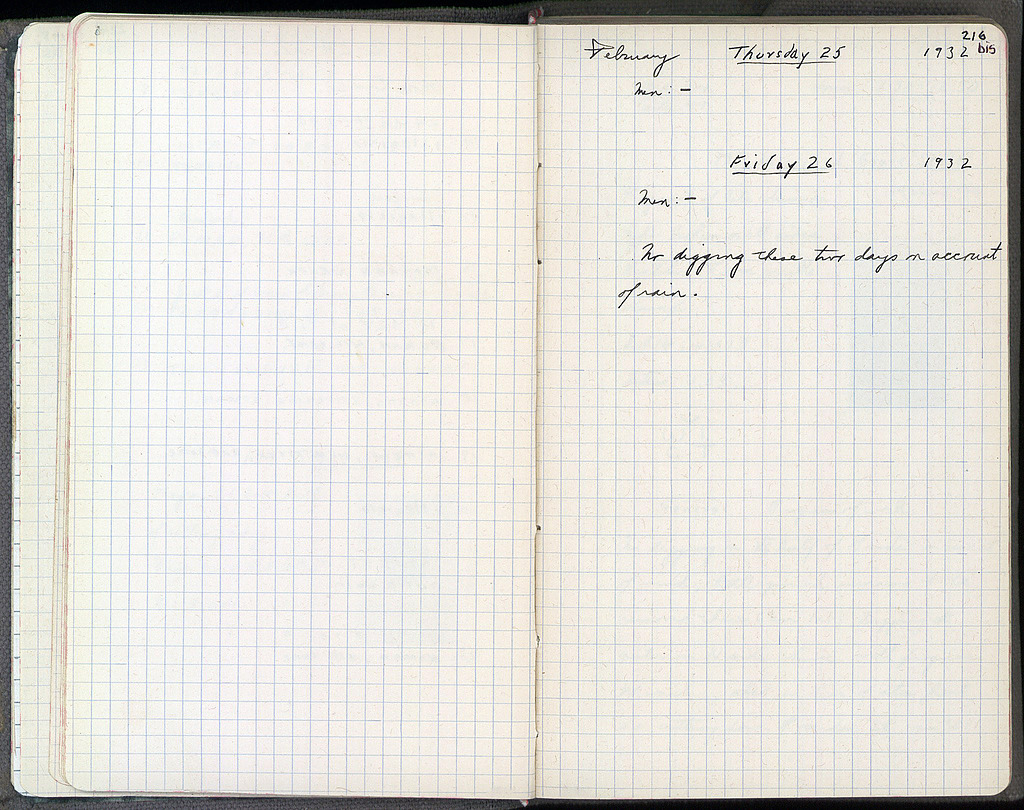 216
February Thursday 25 1932 bis
Men: —
Friday 26 1932
Men: —
No digging these two days on account
of rain.